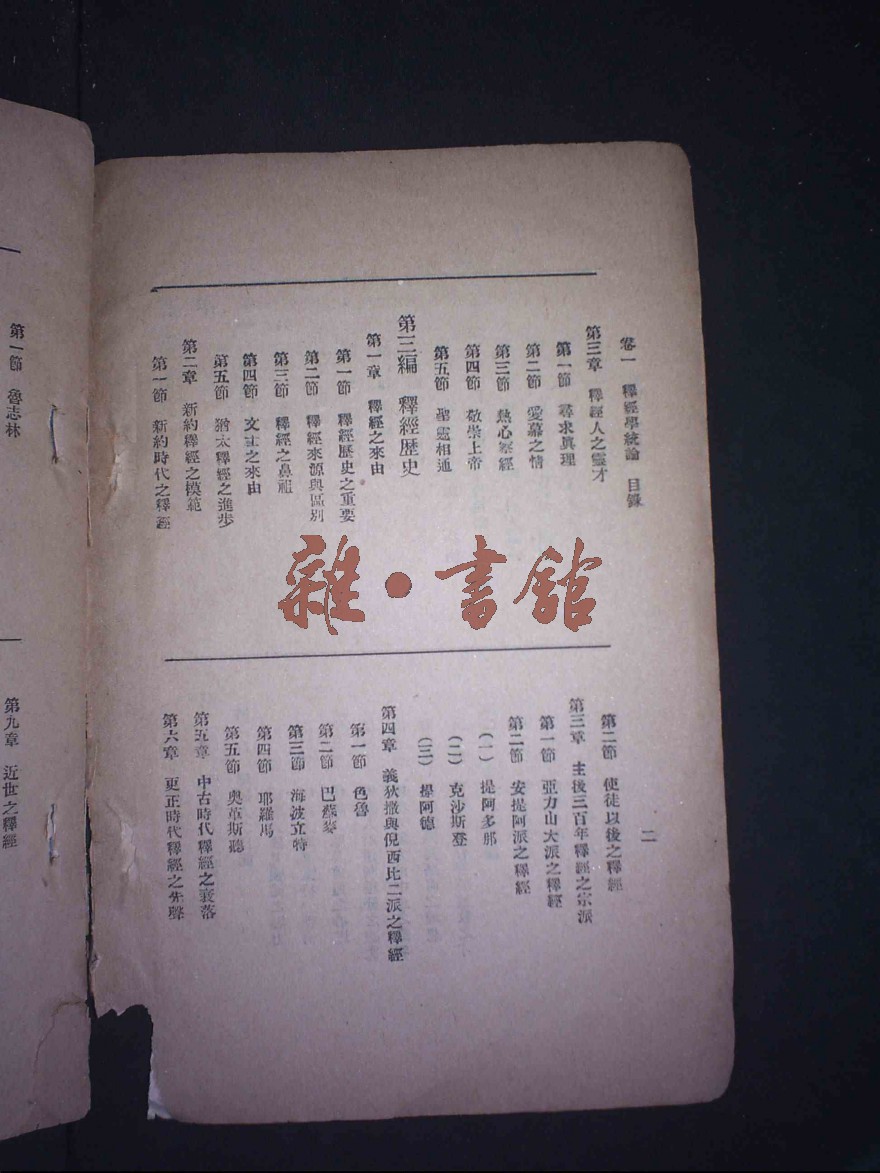 卷一 釋經學統論 目錄
二
第三章 釋經人之靈才
第一節 尋求眞理
第二節 愛慕之情
第三節 熱心察經
第四節 敬崇上帝
第五節 聖靈相通
第三編 釋經歷史
第一章 釋經之來由
第一節 釋經歷史之重要
第二節 釋經來源與區別
第三節 釋經之鼻祖
第四節 文士之來由
第五節 猶太釋經之進步
第二章 新約釋經之模範
第一節 新約時代之釋經
第二節 使徒以後之釋經
第三章 主後三百年釋經之宗派
第一節 亞力山大派之釋經
第二節 安提阿派之釋經
(一) 提阿多那
(二) 克沙斯登
(三) 提阿德
第四章 義狄撒與倪西比二派之釋經
第一節 色魯
第二節 巴蘇麥
第三節 海波立特
第四節 耶羅馬
第五節 奧革斯聽
第五章 中古時代釋經之衰落
第六章 更正時代釋經之先聲
第一節 魯志林
第九章 近世之釋經
雜·書館